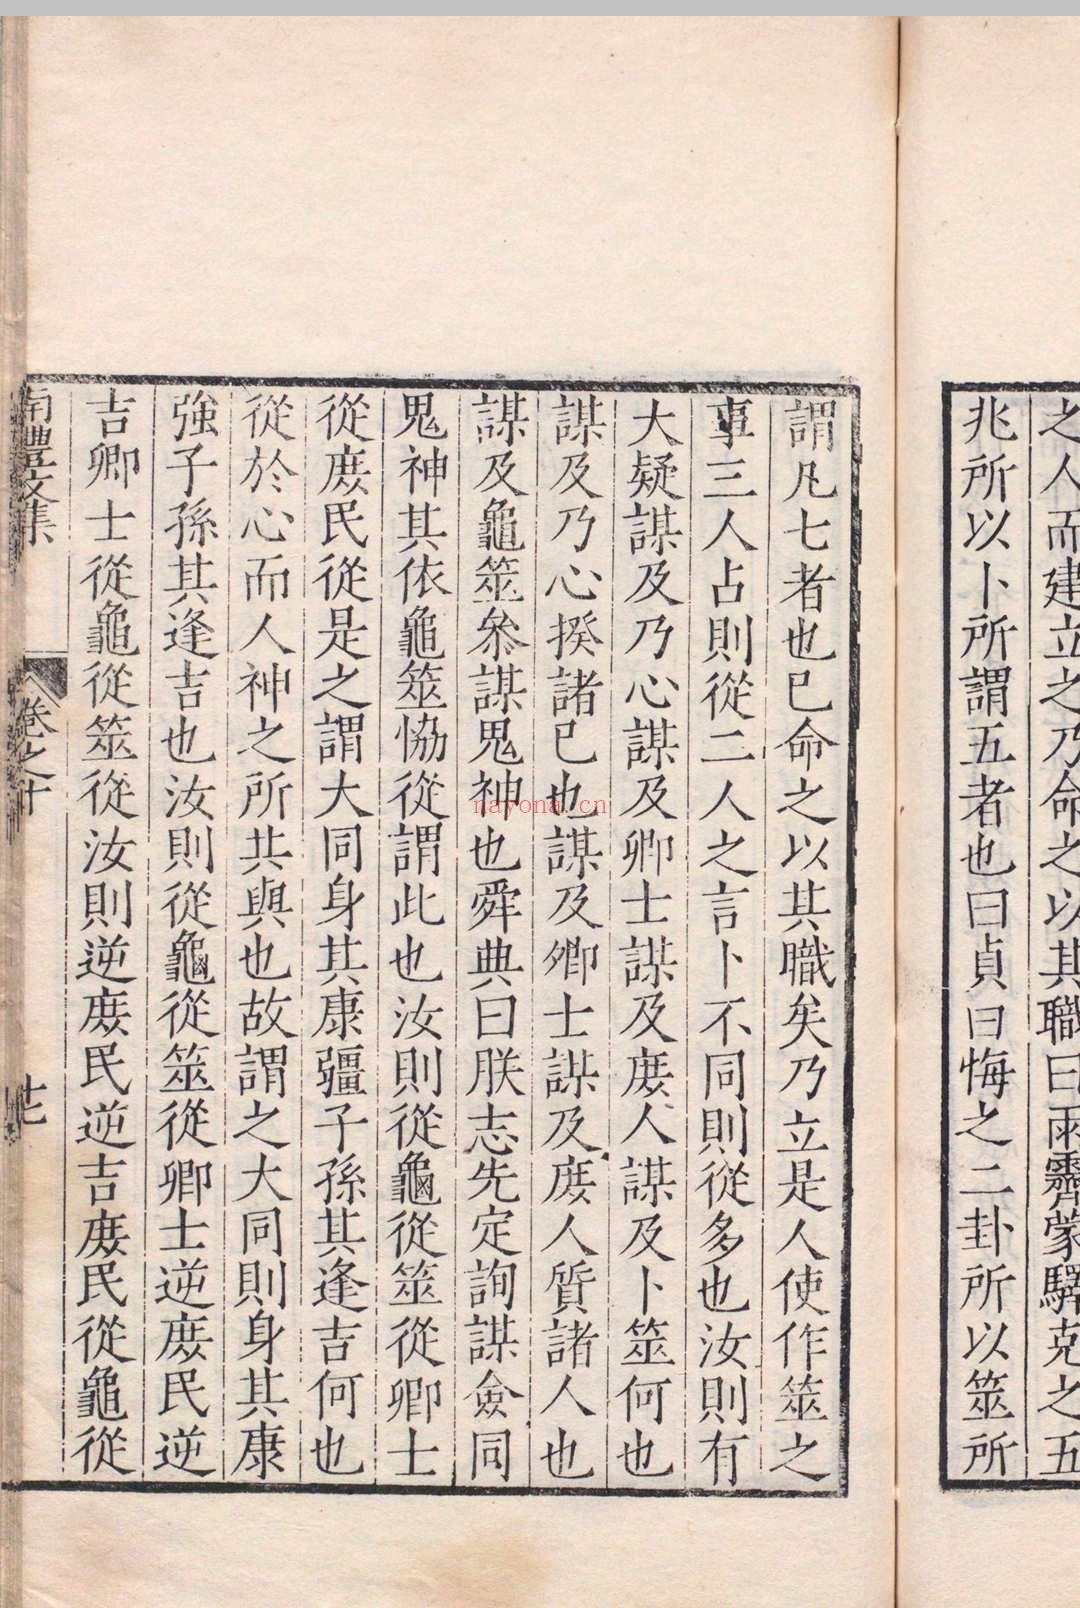 之人而建立之乃命之以其職曰雨霽蒙驛克之五
兆所以卜所謂五者也曰貞曰悔之二卦所以筮所
謂凡七者也已命之以其職矣乃立是人使作筮之
事三人占則從二人之言卜不同則從多也汝則有
大疑謀及乃心謀及卿士謀及庶人謀及卜筮何也
謀及乃心揆諸已也謀及卿士謀及庶人質諸人也
謀及龜筮叅謀鬼神也舜典曰朕志先定詢謀僉同
鬼神其依龜筮恊從謂此也汝則從龜從筮從卿士
從庶民從是之謂大同身其康疆子孫其逢吉何也
從於心而人神之所共與也故謂之大同則身其康
強子孫其逢吉也汝則從龜從筮從卿士逆庶民逆
吉卿士從龜從筮從汝則逆庶民逆吉庶民從龜從
南豐文集 卷之十 廿七
nayona.cn